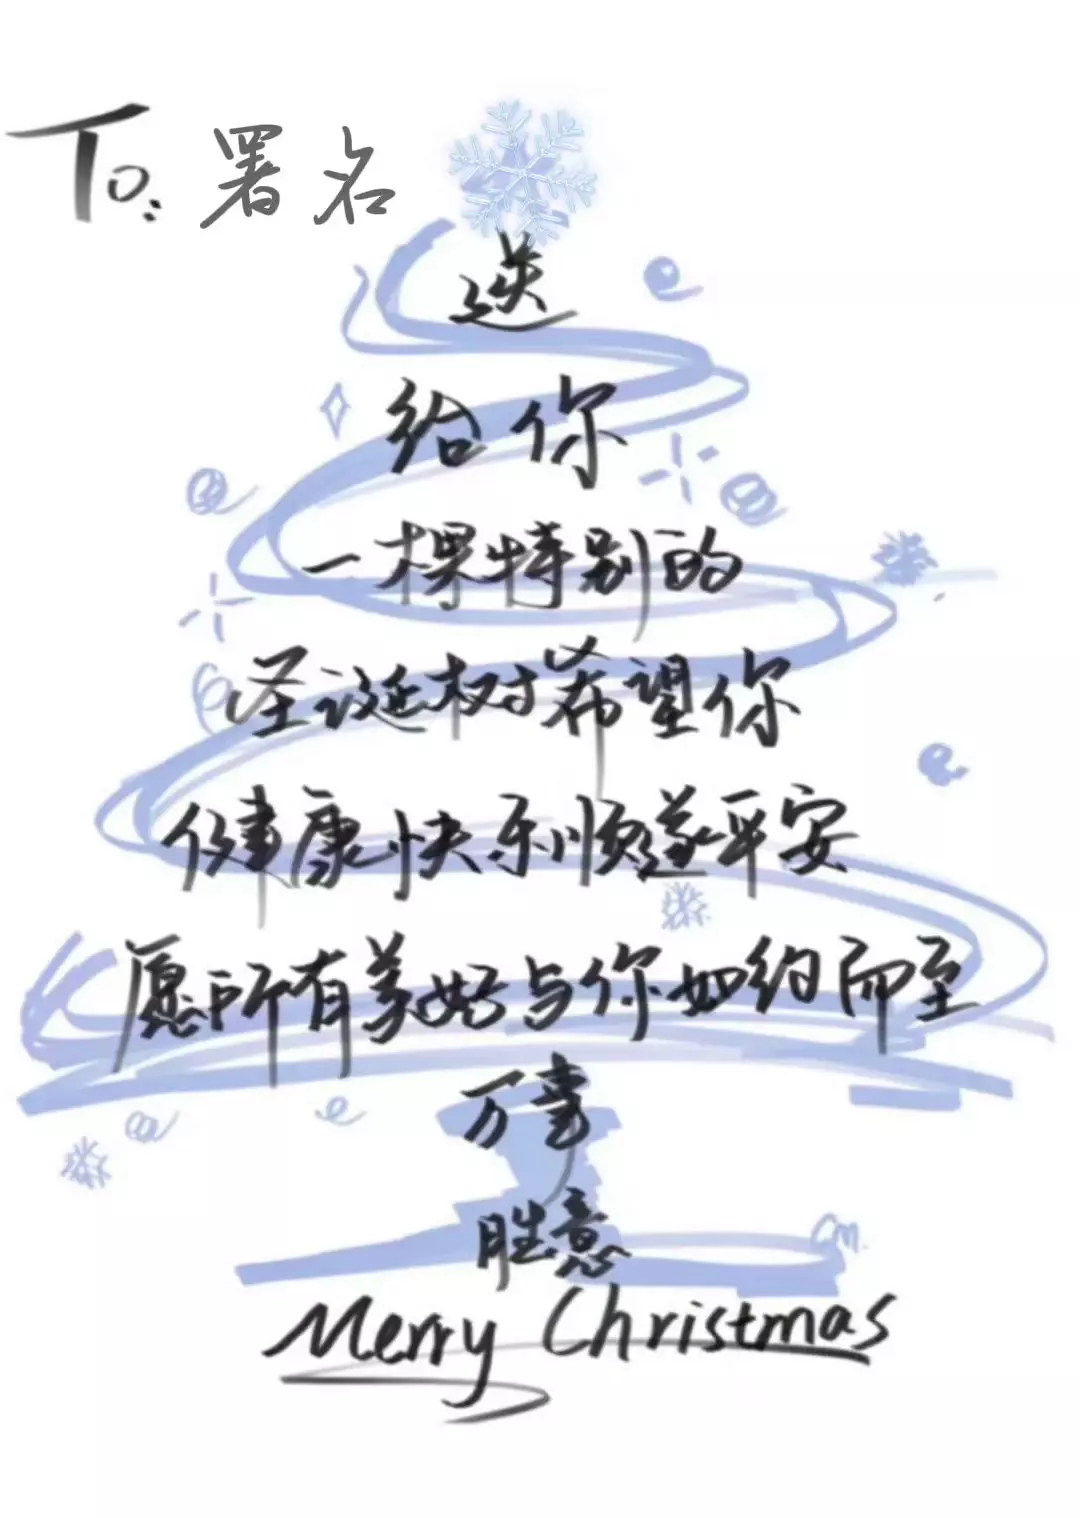 To: 署名
送
给你
一棵特别的
圣诞树希望你
健康快乐顺遂平安
愿所有美好与你如约而至
万事
胜意
Cm.
Merry Christmas